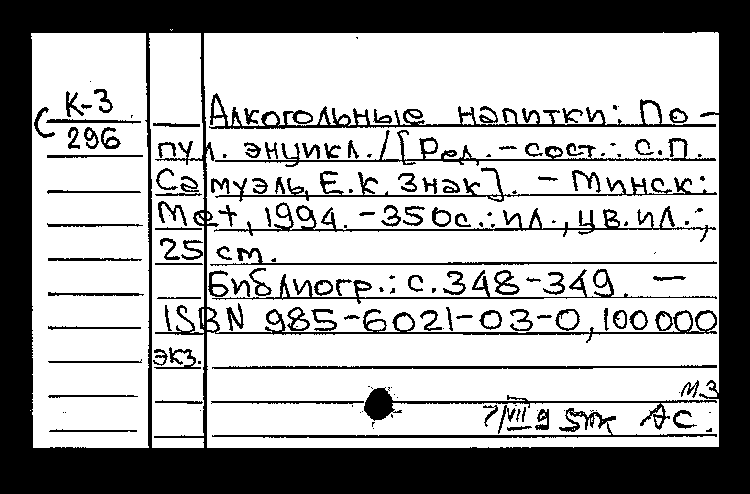 К-3
С
296
Алкогольные напитки: По-
пул. энцикл./[Ред.-сост.: С.П.
Самуэль, Е.К. Знак]. - Минск:
Мет, 1994. - 350с.: ил., цв.ил.;
25 cm.
Библиогр.: с.348-349. —
ISBN 985-6021-03-0, 100000
экз.
МЗ
7/VII 9 АС.